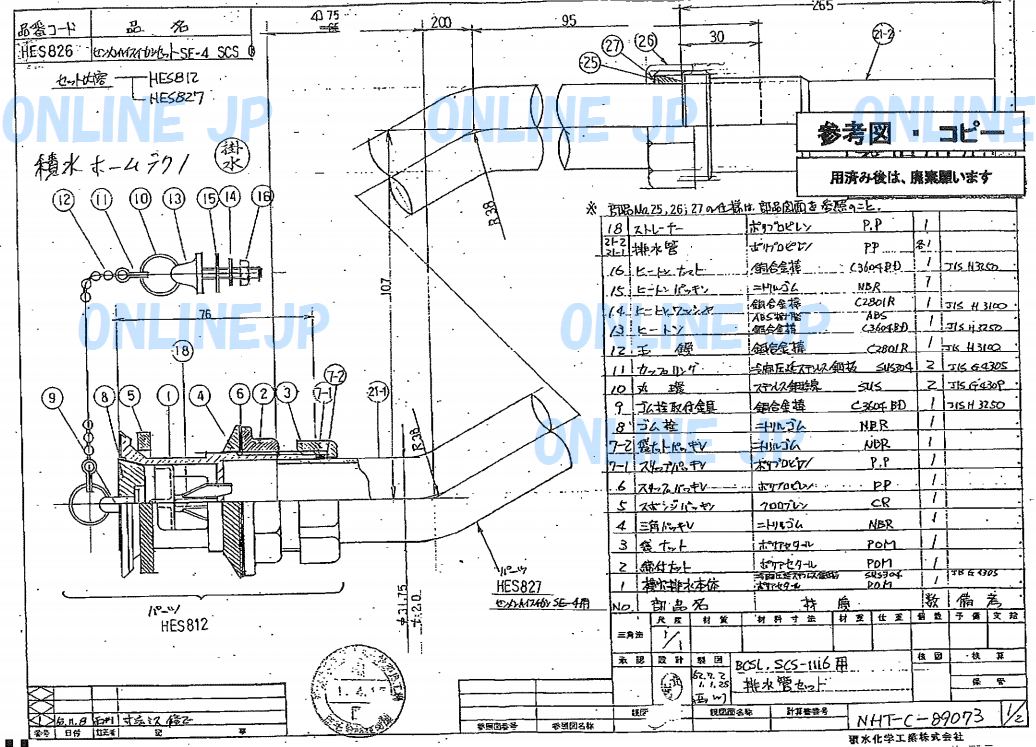 品番コード 品名
HES826 SE-4 SCS
セット内容 HES812
HES827
積水ホームテクノ
掛水
ONLINE JP
ONLINE JP
ONLINE JP
ONLINEJP
ONLINE JP
ONLINE JP
200
95
265
30
(27) (26)
(25)
21-2
参考図・コピー
用済み後は、廃棄願います
R38
107
12 11 10 13 15 14 16
76
18
9 8 5 1 4 6 2 3 7-1 7-2 21-1
R38
※ 部品No.25,26,27の仕様は部品図面を参照のこと.
18 ストレーナー ポリプロピレン P.P 1
21-2
21-1 排水管 ポリプロピレン PP 各1
16 ヒートンナット 銅合金棒 C3604BD 1 JIS H3250
15 ヒートンパッキン ニトリルゴム NBR
14 ヒートンワッシャ 銅合金棒 C2801R 1 JIS H3100
13 ヒートン ABS樹脂 ABS 銅合金棒 C3604BD 1 JIS H3250
12 玉鎖 銅合金棒 C2801R 1 JIS H3100
11 カップリング SUS304 2 JIS G4305
10 丸環 ステンレス鋼線 SUS 2 JIS G4309
9 ゴム栓取付金具 銅合金棒 C3604BD 1 JIS H3250
8 ゴム栓 ニトリルゴム NBR 1
7-2 袋ナットパッキン ニトリルゴム NBR 1
7-1 スリップパッキン ポリプロピレン P.P 1
6 スリップパッキン ポリプロピレン PP 1
5 スポンジパッキン クロロプレン CR 1
4 三角パッキン ニトリルゴム NBR 1
3 袋ナット ポリアセタール POM 1
2 締付ナット ポリアセタール POM 1
1 排水本体 SUS304 ポリアセタール POM 1 JIS G4305
NO. 部品名 材質 数 備考
パーツ
HES827
SE-4用
パーツ
HES812
φ31.75
t2.0
尺度 材質 材料寸法 材重 仕重 個数 予備 支給
三角法 1/1
承認 設計 製図 BCSL.SCS-1116用 検図 検算
排水管セット 保管
寸法ミス修正
番号 日付 訂正者 記事
参照図番号 参照図名称 親図番 親図面名称 計算書番号
NHT-C-89073 1/2
積水化学工業株式会社